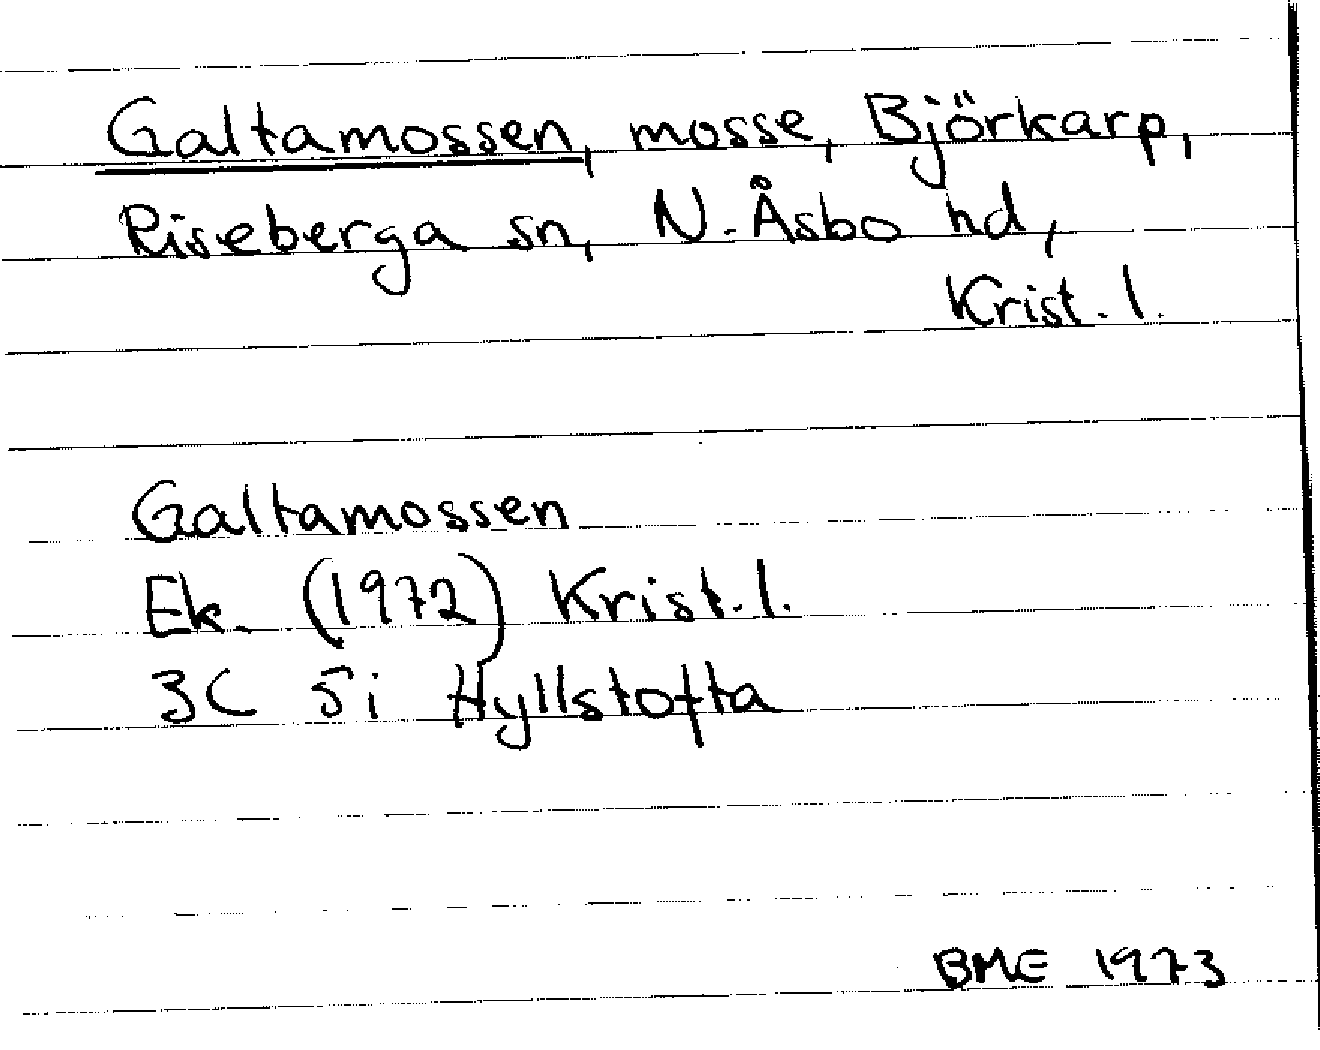 Galtamossen, mosse, Björkarp,
Riseberga sn, N. Åsbo hd,
Krist. l.
Galtamossen
Ek. (1972) Krist. l.
3C 5i Hyllstofta
BME 1973